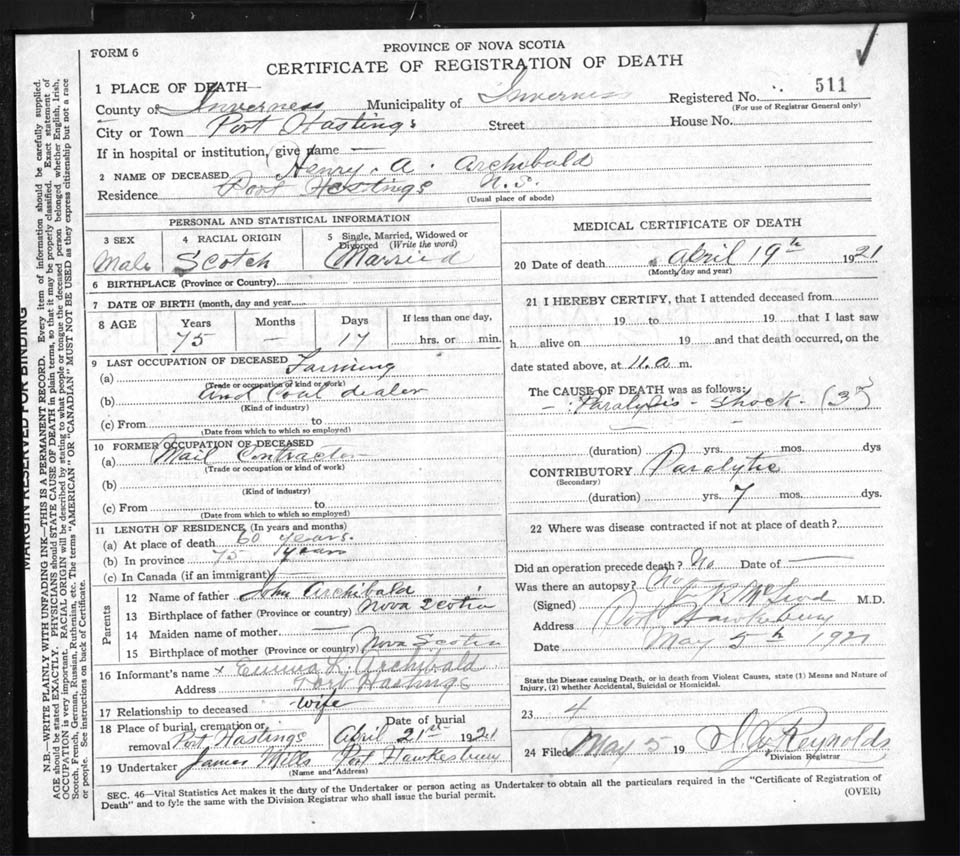 FORM 6
PROVINCE OF NOVA SCOTIA
CERTIFICATE OF REGISTRATION OF DEATH
1 PLACE OF DEATH—
County of Inverness Municipality of Inverness Registered No. 511
(For use of Registrar General only)
City or Town Port Hastings Street House No.
If in hospital or institution, give name —
2 NAME OF DECEASED Henry. A. Archibald
Residence Port Hastings N.S.
(Usual place of abode)
PERSONAL AND STATISTICAL INFORMATION
3 SEX
Male
4 RACIAL ORIGIN
Scotch
5 Single, Married, Widowed or
Divorced (Write the word)
Married
6 BIRTHPLACE (Province or Country)
7 DATE OF BIRTH (month, day and year
8 AGE
Years Months Days If less than one day,
75 — 17 hrs. or min.
9 LAST OCCUPATION OF DECEASED
(a) Farming
(Trade or occupation or kind of work)
(b) and Coal dealer
(Kind of industry)
(c) From to
(Date from which to which so employed)
10 FORMER OCCUPATION OF DECEASED
(a) Mail Contractor
(Trade or occupation or kind of work)
(b)
(Kind of industry)
(c) From to
(Date from which to which so employed)
11 LENGTH OF RESIDENCE (In years and months)
(a) At place of death 60 years.
(b) In province 75 years
(c) In Canada (if an immigrant) —
Parents
12 Name of father John Archibald
13 Birthplace of father (Province or country) Nova Scotia
14 Maiden name of mother —
15 Birthplace of mother (Province or country) Nova Scotia
16 Informant's name x Emma L. Archibald
Address Port Hastings
17 Relationship to deceased wife
18 Place of burial, cremation or removal Port Hastings
Date of burial April 21st 1921
19 Undertaker James Mills Port Hawkesbury
(Name and Address)
MEDICAL CERTIFICATE OF DEATH
20 Date of death April 19th 1921
(Month, day and year)
21 I HEREBY CERTIFY, that I attended deceased from
19 to 19 that I last saw
h alive on 19 and that death occurred, on the
date stated above, at 11.a m.
The CAUSE OF DEATH was as follows:
— Paralysis - Shock -
(duration) yrs. mos. dys
CONTRIBUTORY Paralytic
(Secondary)
(duration) yrs. 7 mos. dys.
22 Where was disease contracted if not at place of death?
Did an operation precede death? No Date of —
Was there an autopsy? No
(Signed) McLeod M.D.
Address Port Hawkesbury
Date May 5th 1921
State the Disease causing Death, or in death from Violent Causes, state (1) Means and Nature of
Injury, (2) whether Accidental, Suicidal or Homicidal.
23 4
24 Filed May 5 19 Reynolds
Division Registrar
SEC. 46—Vital Statistics Act makes it the duty of the Undertaker or person acting as Undertaker to obtain all the particulars required in the "Certificate of Registration of
Death" and to fyle the same with the Division Registrar who shall issue the burial permit.
(OVER)
MARGIN RESERVED FOR BINDING
N.B.—WRITE PLAINLY WITH UNFADING INK—THIS IS A PERMANENT RECORD. Every item of information should be carefully supplied.
AGE should be stated EXACTLY. PHYSICIANS should STATE CAUSE OF DEATH in plain terms, so that it may be properly classified. Exact statement of
OCCUPATION is very important. RACIAL ORIGIN will be described by stating to what people or tongue the deceased person belonged whether English, Irish,
Scotch, French, German, Russian, Ruthenian, etc. The terms "AMERICAN" OR "CANADIAN" MUST NOT BE USED as they express citizenship but not a race
or people. See instructions on back of Certificate.